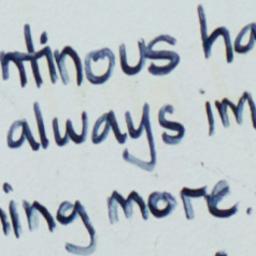 ntinous ha
always im
ning more.